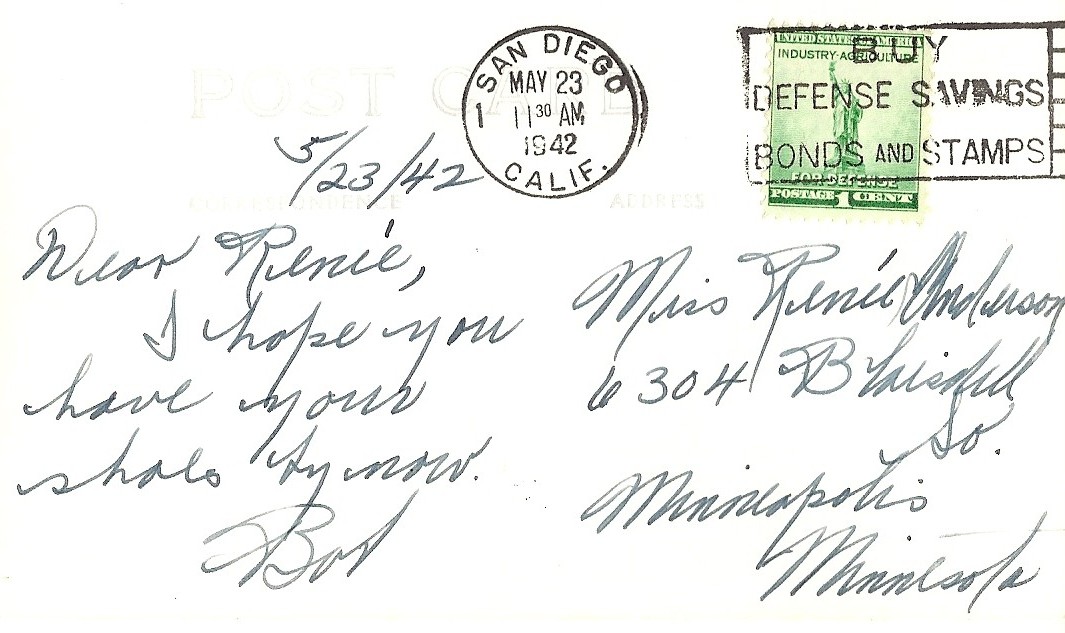 POST CARD
SAN DIEGO
1
MAY 23
11 30 AM
1942
CALIF.
BUY
DEFENSE SAVINGS
BONDS AND STAMPS
UNITED STATES OF AMERICA
INDUSTRY-AGRICULTURE
FOR DEFENSE
POSTAGE 1 CENT
CORRESPONDENCE
ADDRESS
5/23/42
Dear Renée,
I hope you
have your
shoes by now.
Bob
Miss Renée Anderson
6304 Blaisdell
So.
Minneapolis
Minnesota